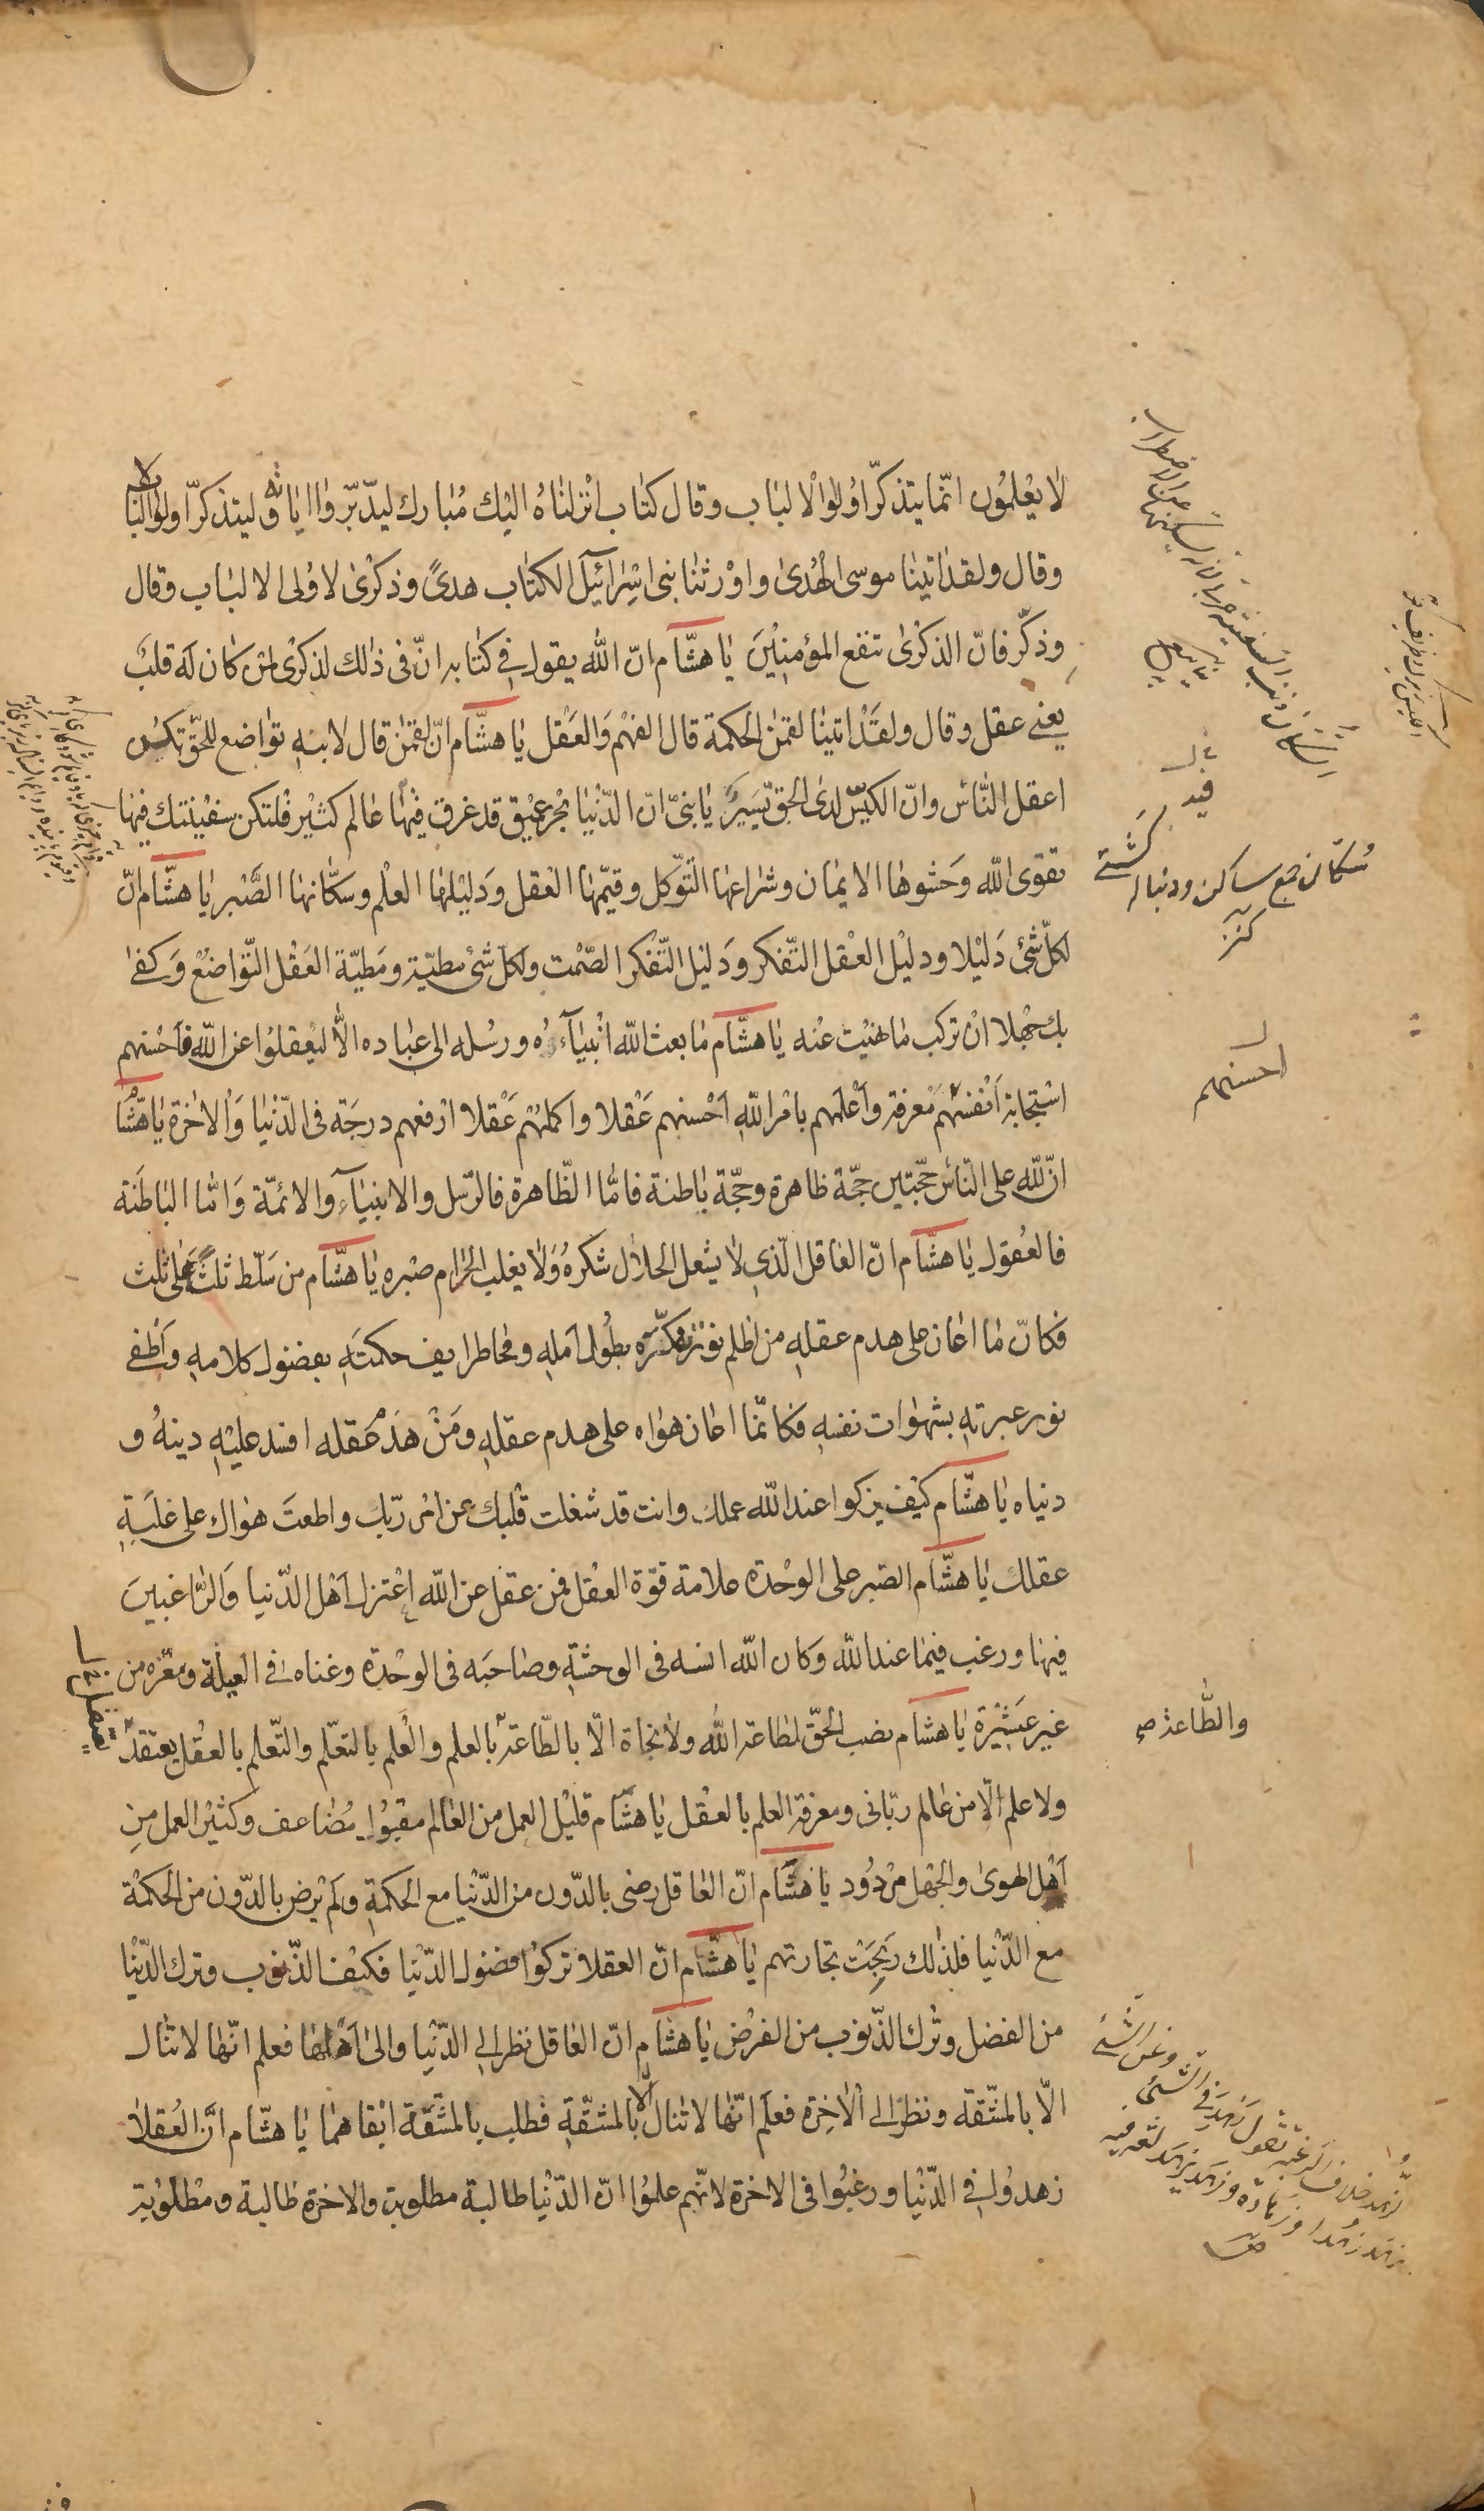 لا يعلمون انّما يتذكّر اولوا الالباب وقال كتاب انزلناه اليك مبارك ليدّبّروا اياته وليتذكّر اولوا الالباب
وقال ولقد اتينا موسى الهدى واورثنا بنى اسرائيل الكتاب هدىً وذكرى لاولى الالباب وقال
وذكّر فانّ الذكرى تنفع المؤمنين يا هشام انّ الله يقول فى كتابه انّ فى ذالك لذكرى لمن كان له قلب
يعنى عقل وقال ولقد اتينا لقمن الحكمة قال الفهم والعقل يا هشام انّ لقمن قال لابنه تواضع للحقّ تكن
اعقل الناس وانّ الكيّس لدى الحق يسير يا بنىّ انّ الدّنيا بحر عميق قد غرق فيها عالم كثير فلتكن سفينتك فيها
تقوى الله وحشوها الايمان وشراعها التّوكل وقيّمها العقل ودليلها العلم وسكّانها الصّبر يا هشام انّ
لكلّ شئ دليلا ودليل العقل التّفكر ودليل التّفكر الصّمت ولكل شئ مطيّة ومطيّة العقل التّواضع وكفى
بك جهلا ان تركب ما نهيت عنه يا هشام ما بعث الله انبياءه ورسله الى عباده الّا ليعقلوا عن الله فاحسنهم
استجابة انفسهم معرفة واعلمهم بامر الله احسنهم عقلا واكملهم عقلا ارفعهم درجة فى الدّنيا والاخرة يا هشام
انّ لله على النّاس حجّتين حجّة ظاهرة وحجّة باطنة فامّا الظّاهرة فالرّسل والانبياء والائمّة وامّا الباطنة
فالعقول يا هشام انّ العاقل الّذى لا يشغل الحلال شكره ولا يغلب الحرام صبره يا هشام من سلّط ثلثًا على ثلث
فكانّ ما اعان على هدم عقله من اظلم نور تفكّره بطول امله ومحا طرايف حكمته بفضول كلامه واطفى
نور عبرته بشهوات نفسه فكانّما اعان هواه على هدم عقله ومن هدم عقله افسد عليه دينه و
دنياه يا هشام كيف يزكوا عند الله عملك وانت قد شغلت قلبك عن امر ربّك واطعت هواك على غلبة
عقلك يا هشام الصّبر على الوحدة علامة قوّة العقل فمن عقل عن الله اعتزل اهل الدّنيا والرّاغبين
فيها ورغب فيما عند الله وكان الله انسه فى الوحشة وصاحبه فى الوحدة وغناه فى العيلة ومعزه من
غير عشيرة يا هشام نصب الحقّ لطاعة الله ولا نجاة الّا بالطّاعة بالعلم والعلم بالتعلّم والتّعلم بالعقل يعتقد
ولا علم الّا من عالم ربّانى ومعرفة العلم بالعقل يا هشام قليل العمل من العالم مقبول مضاعف وكثير العمل من
اهل الهوى والجهل مردود يا هشام انّ العاقل رضى بالدّون من الدّنيا مع الحكمة ولم يرض بالدّون من الحكمة
مع الدّنيا فلذلك ربحت تجارتهم يا هشام انّ العقلا تركوا فضول الدّنيا فكيف الذّنوب وترك الدّنيا
من الفضل وترك الذّنوب من الفرض يا هشام انّ العاقل نظر الى الدّنيا والى اهلها فعلم انّها لا تنال
الّا بالمشّقة ونظر الى الاخرة فعلم انّها لا تنال الّا بالمشقّة فطلب بالمشقّة ابقاهما يا هشام انّ العقلا
زهدوا فى الدّنيا ورغبوا فى الاخرة لانّهم علموا انّ الدّنيا طالبة مطلوبة والاخرة طالبة ومطلوبة
سكّان جمع ساكن ودنباله كشتى
كنز
احسنهم
والطّاعة
الزهد خلاف الرغبة تقول زهد فى الشئ وعن الشئ